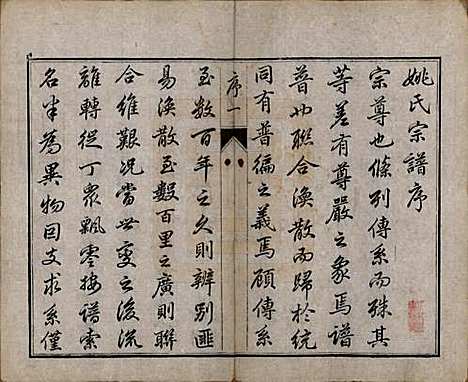 姚氏宗譜序
宗尊也條列傳系而殊其
等差有尊嚴之象焉譜
普也聯合渙散而歸於統
同有普徧之義焉顧傳系
序一
至數百年之久則辨別匪
易渙散至數百里之廣則聯
合維艱況當世變之後流
離轉徙丁眾飄零按譜索
名半為異物回支求系僅